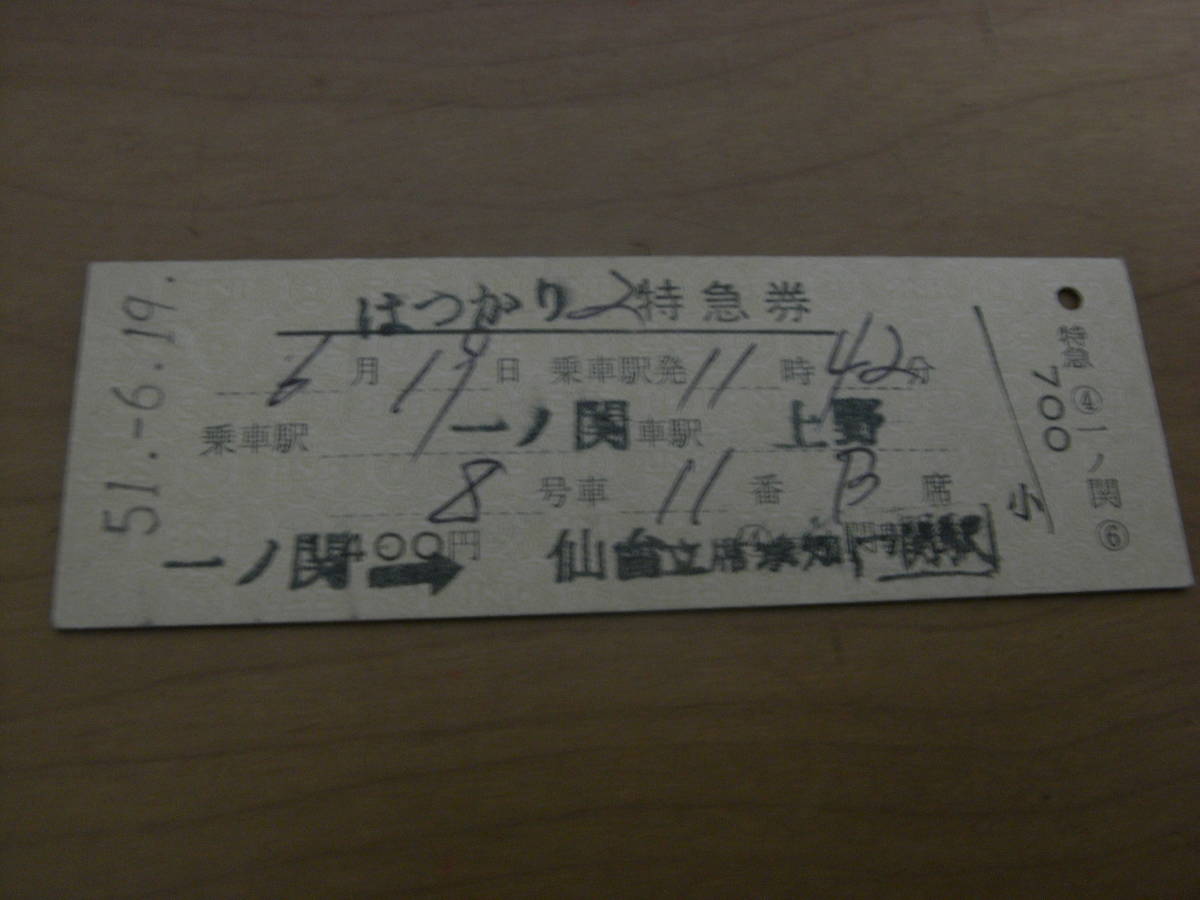 51.-6.19.
はつかり2特急券
6月19日 乗車駅発11時42分
乗車駅 一ノ関 車駅 上野
8号車 11番B席
一ノ関 400円 ➡ 仙台立席承知 関駅
小
特急 ④一ノ関⑥
700